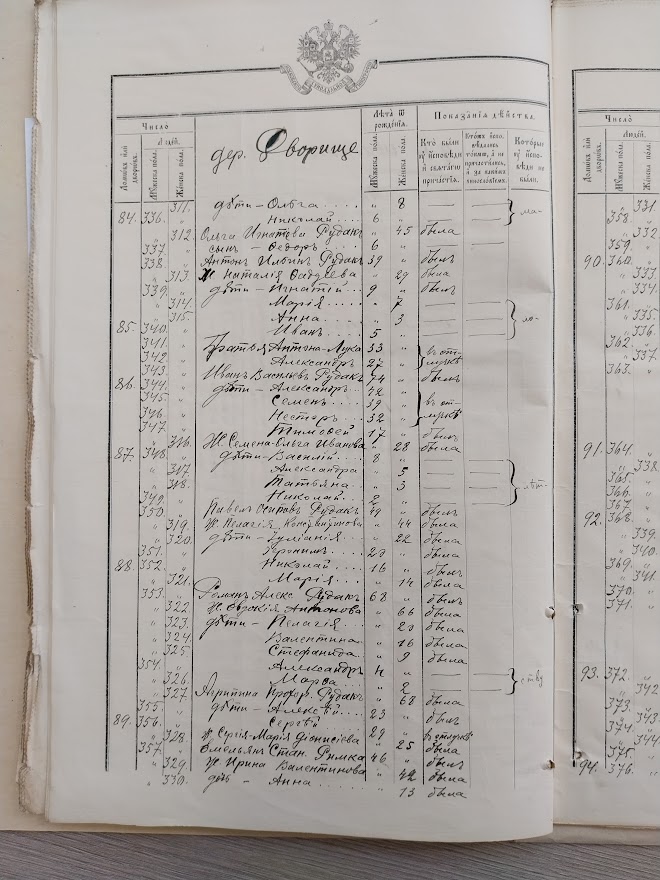 Число
Людей.
Домовъ или дворовъ.
Мужеска пола.
Женска пола.
дер. Дворище
Лѣта ѿ рожденія.
Мужеска пола.
Женска пола.
Показанія дѣйства.
Кто были у исповѣди и святаго причастія.
Которые у исповѣди не были.
311. дѣти - Ольга . . . . „ 8 — —
84. 336. „ Николай . . . . 6 „ — — } ма-
„ 312. Ольга Игнатова Рудакъ „ 45 была
337. „ сынъ - Ѳедоръ . . 6 „ — —
338. „ Антонъ Ильинъ Рудакъ 39 „ былъ
„ 313. Ж Наталія Ѳадѣева „ 29 была
339. „ дѣти - Игнатій . . . 9 „ былъ
„ 314. Марія . . . . . „ 7 — —
„ 315. Анна . . . . . „ 3 — — } ло-
85. 340. „ Иванъ . . . . 5 „ — —
341. „ Братья Антона - Лука 33 „
342. „ Александръ . . 27 „ } въ отлучкѣ
343. „ Иванъ Васильевъ Рудакъ 74 „ былъ
86. 344. „ дѣти - Александръ . . 42 „
345. „ Семенъ . . . . 39 „ } въ отлучкѣ
346. „ Несторъ . . . . 32 „
347. „ Тимоѳей . . . . 17 „ былъ
„ 316. Ж Семена - Ольга Иванова „ 28 была
87. 348. „ дѣти - Василій . . . 8 „ — —
„ 317. Александра „ 5 — —
„ 318. Татьяна . . . „ 3 — — } лѣт-
349. „ Николай . . . 2 „ — —
350. „ Павелъ Осиповъ Рудакъ 49 „ былъ
„ 319. Ж Пелагія Константинова „ 44 была
„ 320. дѣти - Іуліанія . . „ 22 была
351. „ Іеронимъ . . . 20 „ былъ
88. 352. „ Николай . . . 16 „ былъ
„ 321. Марія . . . . „ 14 была
353. „ Романъ Алекс. Рудакъ 68 „ былъ
„ 322. Ж Евдокія Антонова „ 66 была
„ 323. дѣти - Пелагія . . . „ 23 была
„ 324. Валентина „ 16 была
„ 325. Стефанида . . „ 9 была
354. „ Александръ . . 4 „ — —
„ 326. Марѳа . . . . „ 2 — — } ству
„ 327. Агрипина Рудакъ „ 68 была
355. „ дѣти - Алексѣй . . . 23 „ былъ
89. 356. „ Сергѣй . . . . 29 „ въ отлучкѣ
„ 328. Ж Сергія - Марія Діонисіева „ 25 была
357. „ Емельянъ Стан. Римка 46 „ былъ
„ 329. Ж Ирина Валентинова „ 42 была
„ 330. дѣв - Анна . . . . „ 13 была
Число
Людей.
Домовъ или дворовъ.
Мужеска пола.
Женска пола.
„ 331.
358. „
„ 332
359. „
90. 360. „
„ 333.
„ 334.
361. „
„ 335.
„ 336.
362. „
„ 337.
363. „
91. 364. „
„ 338.
365. „
366. „
367. „
92. 368. „
„ 339.
„ 340.
369. „
„ 341.
370. „
371. „
93. 372. „
„ 342
373 „
„ 343
374 „
„ 344
375. „
94. 376. „